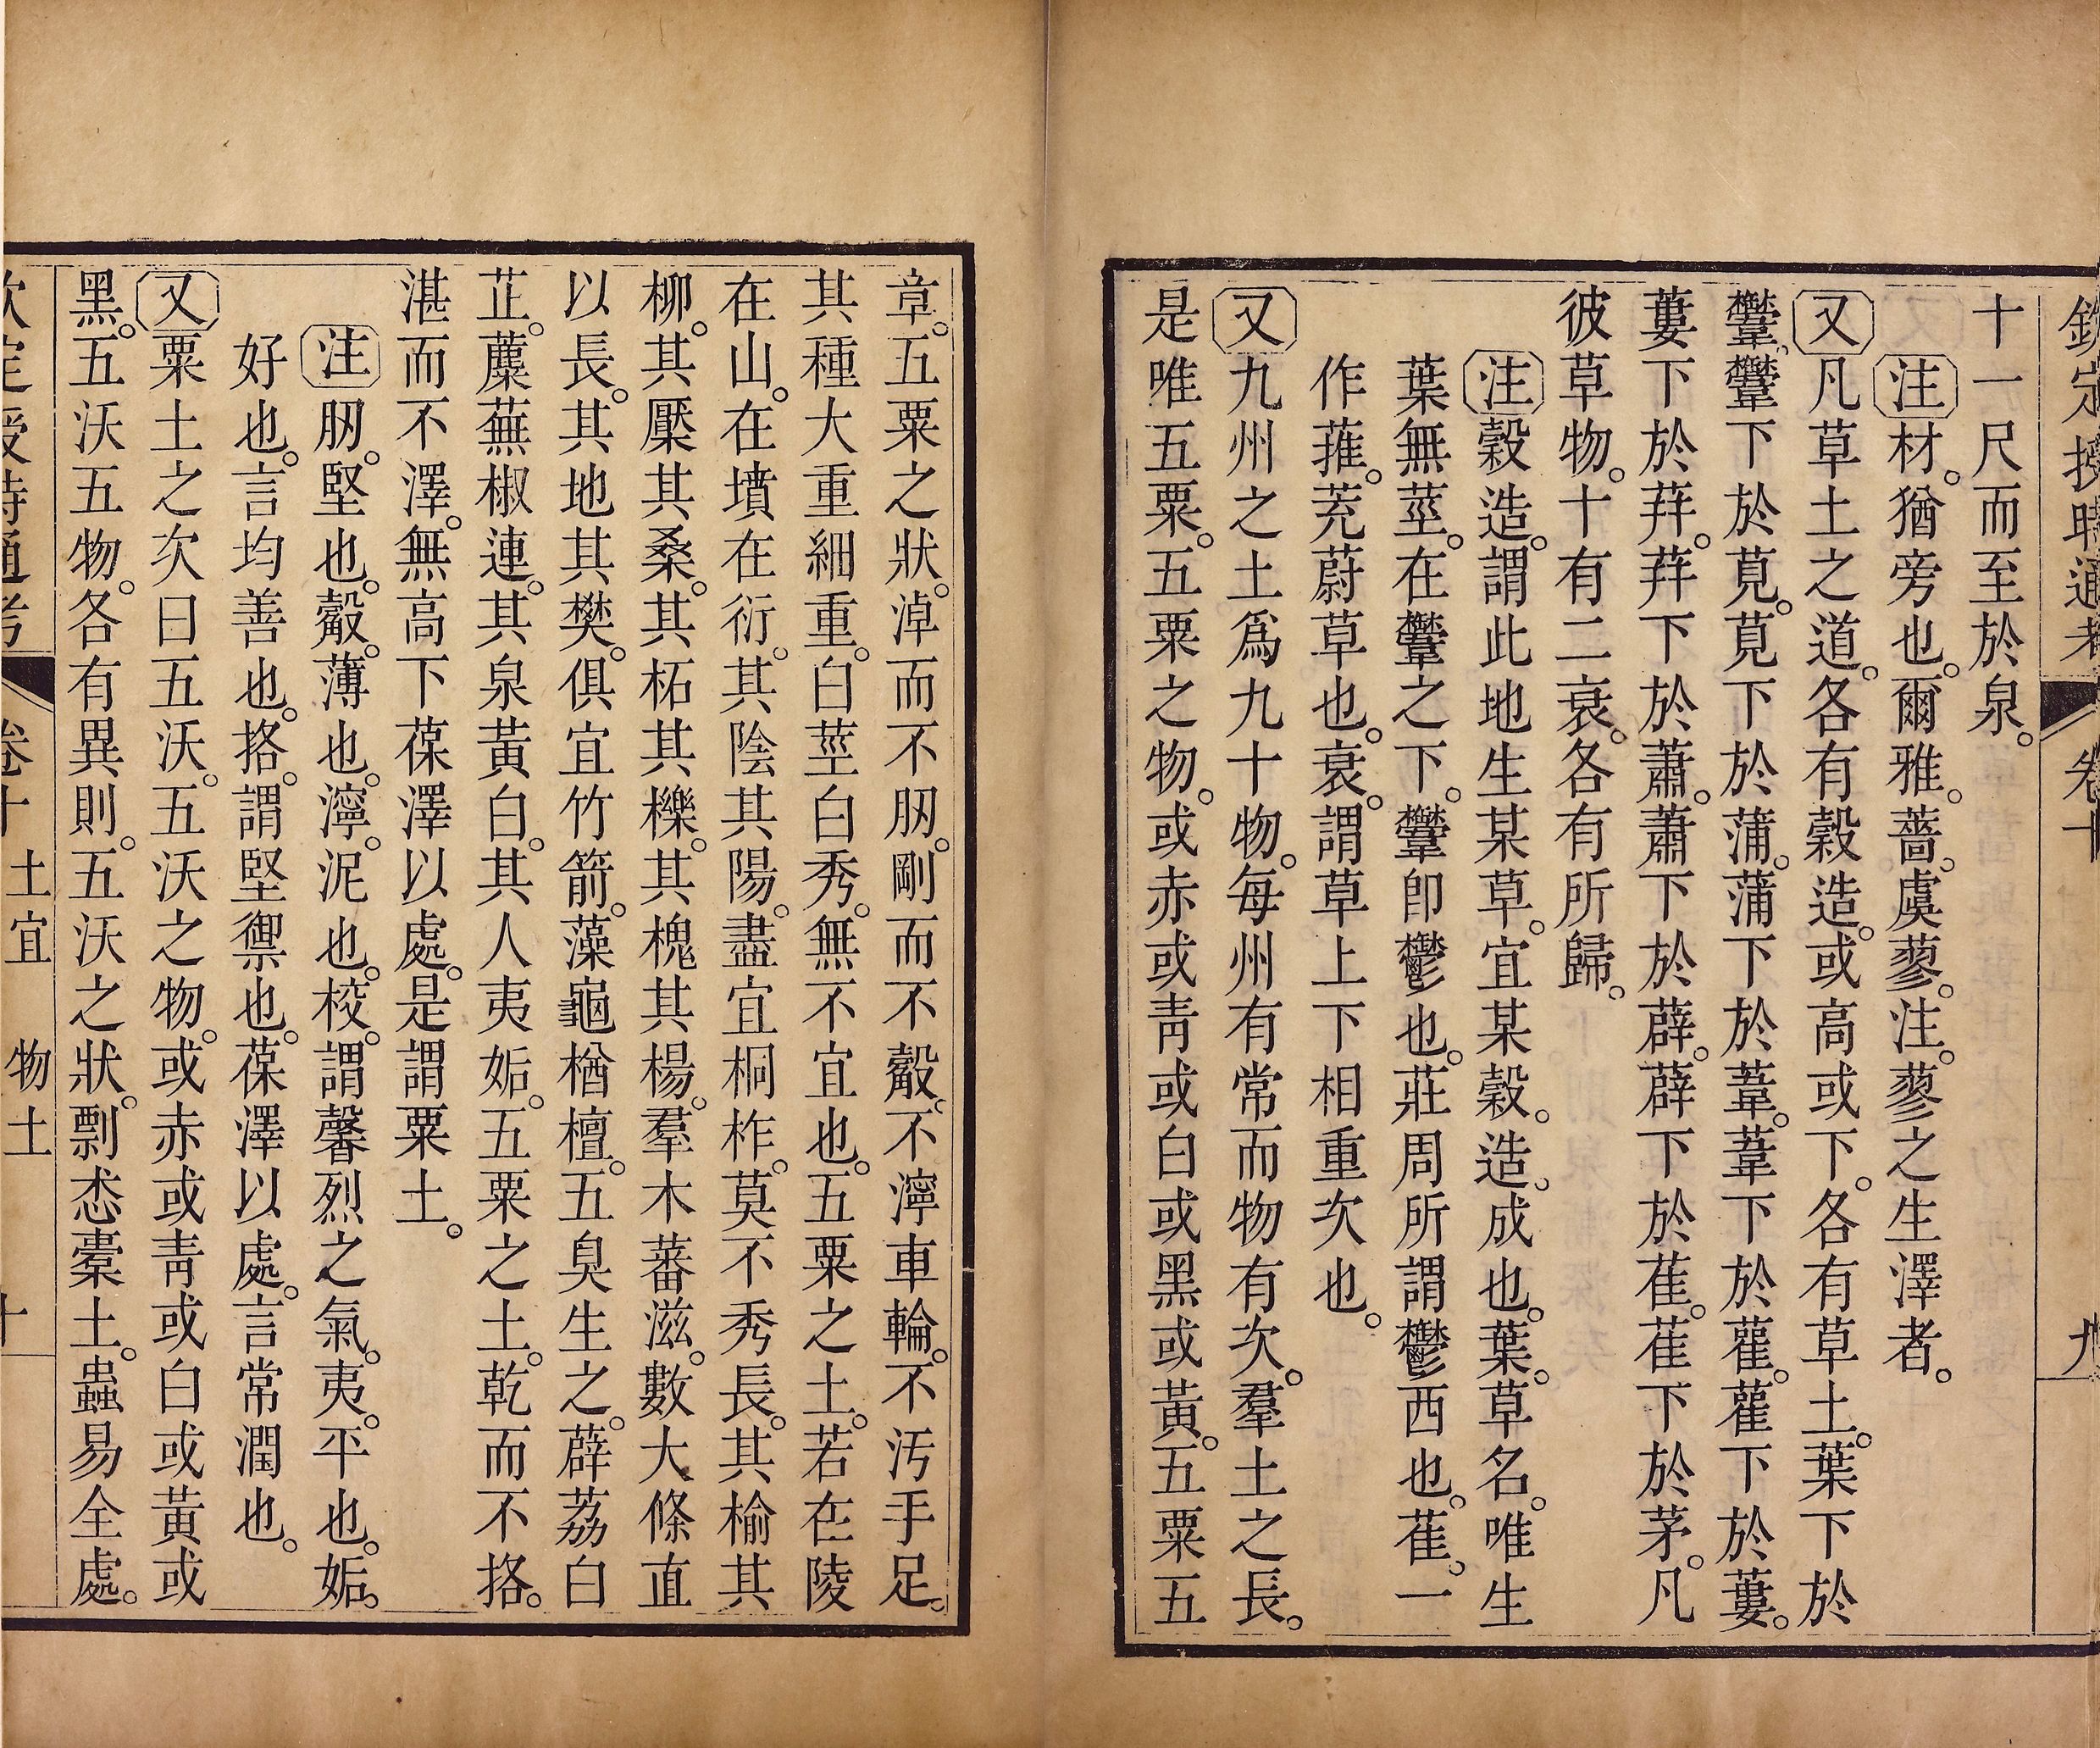 欽定授時通考 卷十 九
十一尺而至於泉。
注材。猶旁也。爾雅。薔。虞蓼。注。蓼之生澤者。
又凡草土之道。各有穀造。或高或下。各有草土。葉下於
虆。虆下於莧。莧下於蒲。蒲下於葦。葦下於雚。雚下於蔞。
蔞下於荓。荓下於蕭。蕭下於薜。薜下於萑。萑下於茅。凡
彼草物。十有二衰。各有所歸。
注穀造。謂此地生某草。宜某穀。造。成也。葉。草名。唯生
葉無莖。在之下。卽鬱也。莊周所謂鬱西也。萑。一
作蓷。茺蔚草也。衰。謂草上下相重次也。
又九州之土爲九十物。每州有常而物有次。羣土之長。
是唯五粟。五粟之物。或赤或靑或白或黑或黃。五粟五
章。五粟之狀。淖而不肕。剛而不觳。不濘車輪。不汚手足。
其種大重細重。白莖白秀。無不宜也。五粟之土。若在陵
在山。在墳在衍。其陰其陽。盡宜桐柞。莫不秀長。其榆其
柳。其檿其桑。其柘其櫟。其槐其楊。羣木蕃滋。數大條直
以長。其地其樊。俱宜竹箭。藻龜楢檀。五臭生之。薜荔白
芷。蘪蕪椒連。其泉黃白。其人夷姤。五粟之土。乾而不挌。
湛而不澤。無高下葆澤以處。是謂粟土。
注肕。堅也。觳。薄也。濘。泥也。校。謂馨烈之氣。夷。平也。姤。
好也。言均善也。挌。謂堅禦也。葆澤以處。言常潤也。
又粟土之次曰五沃。五沃之物。或赤或靑或白或黃或
黑。五沃五物。各有異則。五沃之狀。剽怸橐土。蟲易全處。
欽定授時通考 卷十 土宜 物土 十